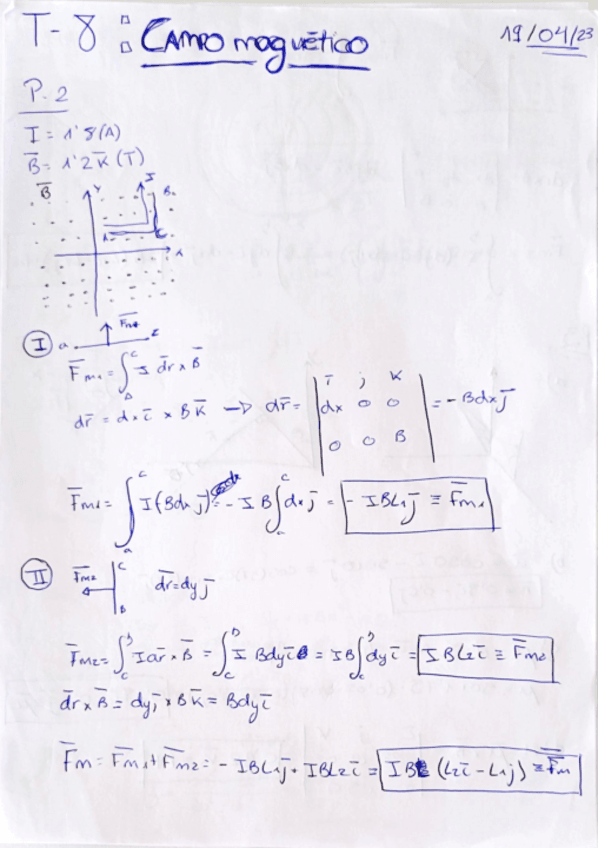 T-8: CAMPO magnético
19/04/23
P.2
I = 1'8(A)
B̅ = 1'2 K̅ (T)
B̅ Y I B
A C x
I a. F̅m₁ c
F̅m₁ = ∫ₐᶜ I d̅r x B̅
d̅r = dx i̅ x B K̅ → d̅r = | i̅ j K | dx 0 0 | 0 0 B | = - Bdx j̅
F̅m₁ = ∫ₐᶜ I(Bdx j̅) = - I B ∫ₐᶜ dx j̅ = - IBL₁ j̅ ≡ F̅m₁
II F̅m₂ C B d̅r = dy j̅
F̅m₂ = ∫ᶜᵇ I d̅r x B̅ = ∫ᶜᵇ I Bdy i̅ = IB ∫ᶜᵇ dy i̅ = I B L₂ i̅ ≡ F̅m₂
d̅r x B̅ = dy j x B K̅ = Bdy i̅
F̅m = F̅m₁ + F̅m₂ = - IBL₁ j̅ + IBL₂ i̅ = IB (L₂ i̅ - L₁ j̅) ≡ F̅m